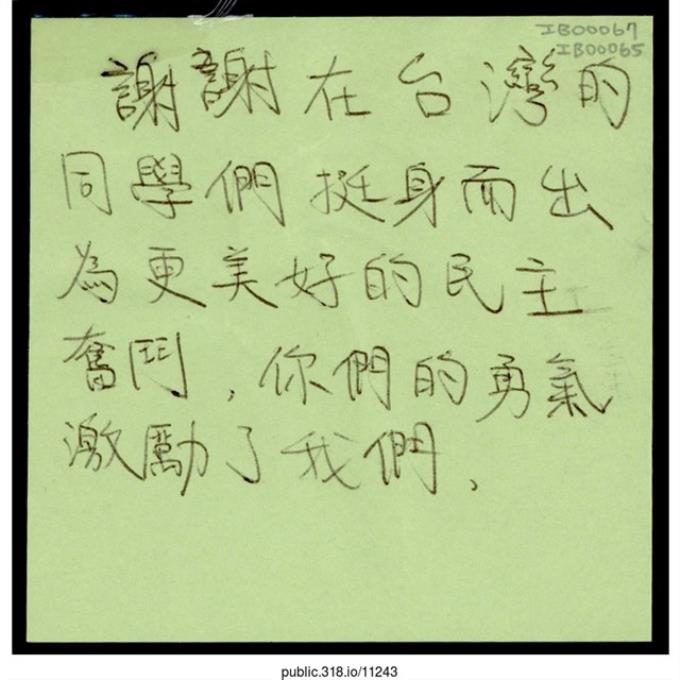 IB00067
IB00065
謝謝在台灣的
同學們挺身而出
為更美好的民主
奮鬥,你們的勇氣
激勵了我們,
public.318.io/11243